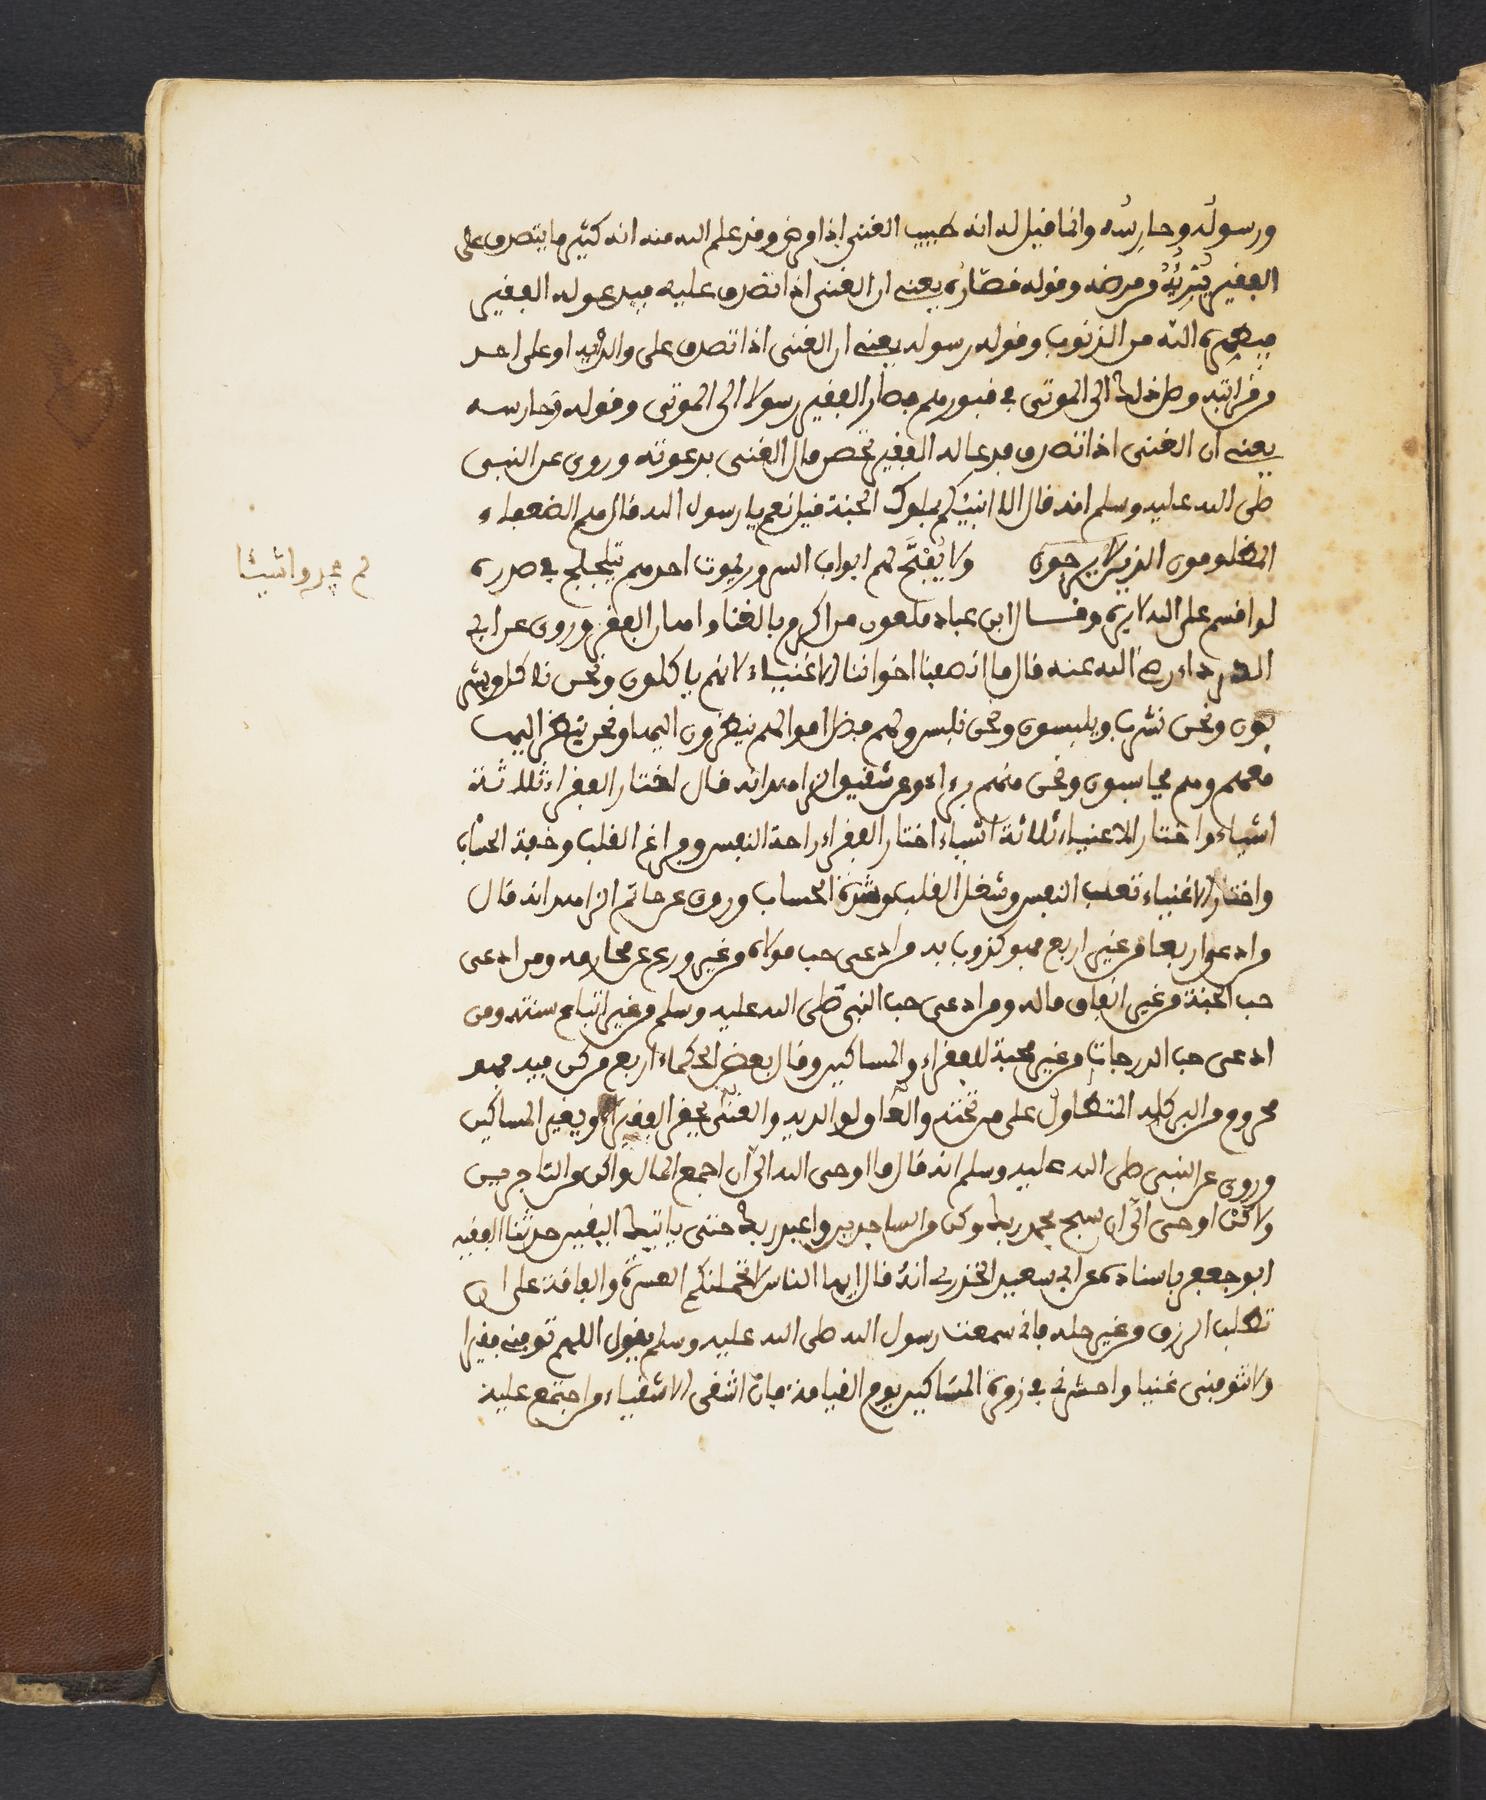 ورسوله وحارسه وانما قيل له انه طبيب الغني اذا مرض وقد علم الله منه انه كثير ما يتصدق على
الفقير يبريه من مرضه وقوله قصاره يعنے ان الغنى اذا تصدق عليه فيدعو له الفقير
فيطهره الله من الذنوب وقوله رسوله يعنے ان الغنى اذا تصدق على والديه او على احد
من قرابته وصل ذلك الى الموتى في قبورهم فصار الفقير رسولا الى الموتى وقوله وحارسه
يعنے ان الغنى اذا تصدق فدعا له الفقير تحصن مال الغنى بدعوته وروى عن النبي
صلى الله عليه وسلم انه قال الا انبئكم بملوك الجنة قيل نعم يا رسول الله قال هم الضعفاء
المظلومون الذين لا يرجون ولا يفتح لهم ابواب السدد ويموت احدهم يتلجلج في صدره
لم يجدوا شيئا
لو اقسم على الله لابره وقال ابن عباد ملعون من اكرم بالغنا واهان بالفقر وروى عن ابى
الدرداء رضي الله عنه قال ما انصفنا اخواننا الاغنياء لانهم ياكلون ونحن ناكل ويشر
بون ونحن نشرب ويلبسون ونحن نلبس ولهم فضل اموالهم ينظرون اليها ونحن ننظر اليها
معهم وهم يحاسبون ونحن منهم برءاء وعن شقيق الزاهد انه قال اختار الفقراء ثلاثة
اشياء واختار الاغنياء ثلاثة اشياء اختار الفقراء راحة النفس وفراغ القلب وخفة الحساب
واختار الاغنياء تعب النفس وشغل القلب وشدة الحساب وروى عن حاتم الزاهد انه قال
من ادعى اربعا من غير اربع فهو كذوب به من ادعى حب مولاه من غير ورع عن محارمه ومن ادعى
حب الجنة من غير انفاق ماله ومن ادعى حب النبي صلى الله عليه وسلم من غير اتباع سنته ومن
ادعى حب الدرجات من غير محبة للفقراء والمساكين وقال بعض الحكماء اربع من كن فيه فهو
محروم من البر كله المتطاول على من تحته والعاق لوالديه والغنى يحقر الفقراء ويعير المساكين
وروى عن النبي صلى الله عليه وسلم انه قال ما اوحى الله الى ان اجمع المال واكن من التاجرين
ولاكن اوحى الي ان سبح بحمد ربك وكن من الساجدين واعبد ربك حتى ياتيك اليقين حدثنا الفقيه
ابو جعفر باسناده عن ابى سعيد الخذري انه قال ايها الناس لا تحملنكم العسرة والفاقة على ان
تطلب الرزق من غير حله فانى سمعت رسول الله صلى الله عليه وسلم يقول اللهم توفنى فقيرا
ولا توفنى غنيا واحشرنى في زمرة المساكين يوم القيامة فان اشقى الاشقياء من اجتمع عليه